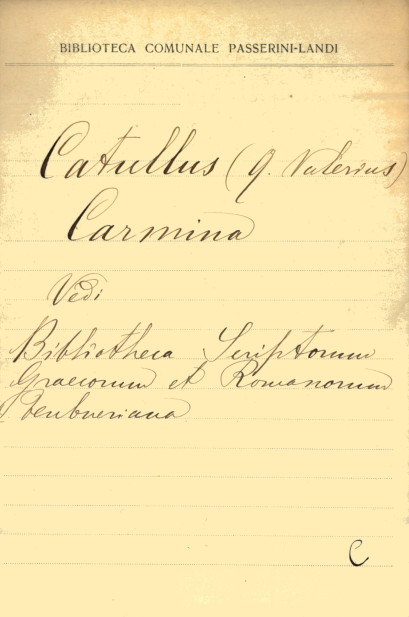 BIBLIOTECA COMUNALE PASSERINI-LANDI
Catullus (Q. Valerius)
Carmina
Vedi
Bibliotheca Scriptorum
Graecorum et Romanorum
Teubneriana
C